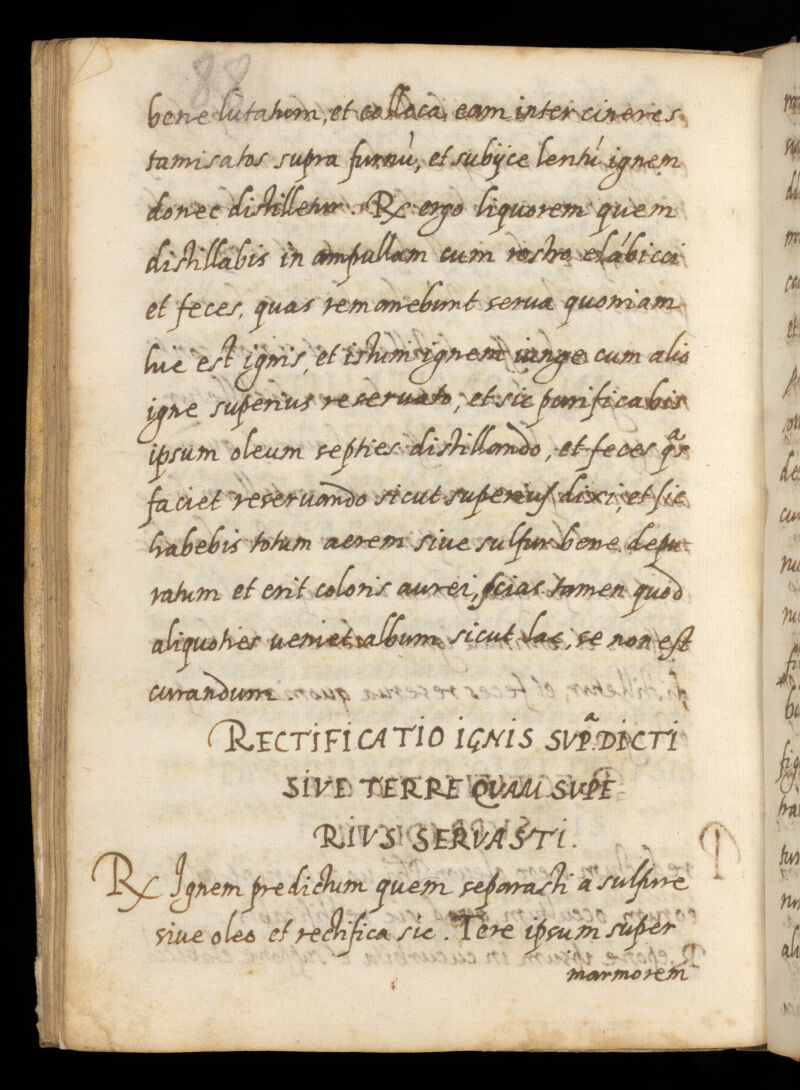 88
bene lutatum, et colloca eam inter cineres
tamisatos supra furnũ, et subijce lentũ ignem
donec distilletur. ℞ ergo liquorem quem
distillabis in ampullam cum rostro elãbicci
et feces, quas remanebunt serua quoniam
hic est ignis, et istum ignem iunge cum alio
igne superius reseruato, et sic purificabis
ipsum oleum septies distillando, et feces qᵃs
faciet reseruando sicut superius dixi, et sic
habebis totum aerem siue sulfur bene depu-
ratum et erit coloris aurei, scias tamen quod
aliquoties ueniet album sicut lac, se non est
curandum.
RECTIFICATIO IGNIS SVPᵃDICTI
SIVE TERRE QUAM SVPE-
RIVS SERVASTI.
℞ Ignem predictum quem separasti a sulfure
siue oleo et rectifica sic. Tere ipsum super
marmorem